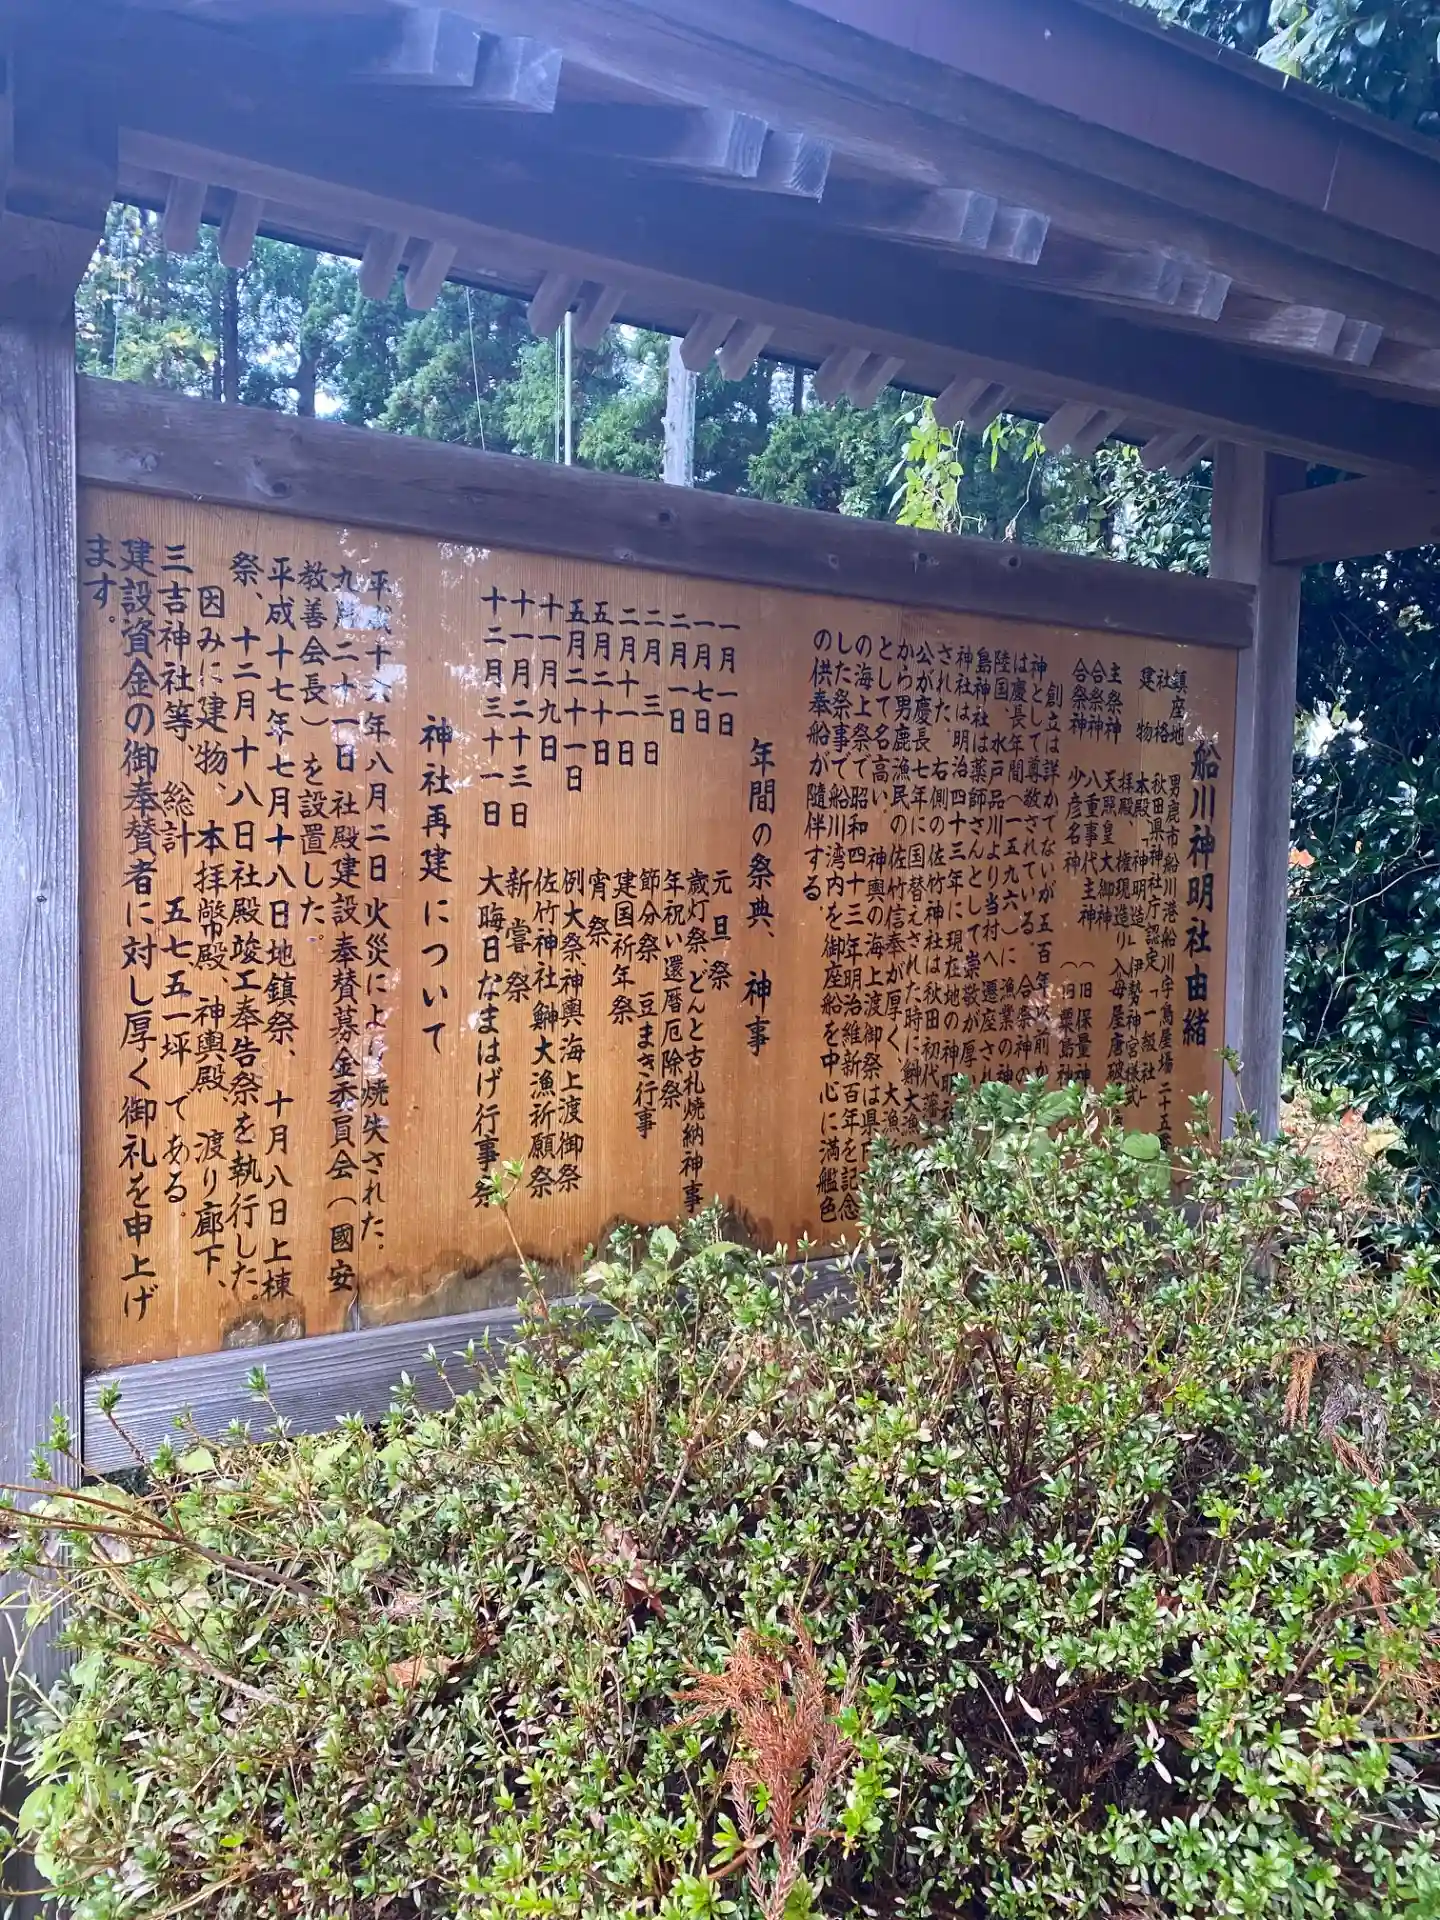 船川神明社由緒
鎮座地 男鹿市船川港船川字鳥屋場二十五番
社格 秋田県神社庁認定「一級社」
建物 本殿「神明造」伊勢神宮様式
拝殿、権現造り入母屋唐破
主祭神 天照皇大御神
合祭神 八重事代主神 (旧保量神
合祭神 少彦名神 (旧粟島神
創立は詳かでないが五百年以前か
神として尊敬されている。合祭神の
は慶長年間(一五九六)に漁業の神
陸国、水戸品川より当村へ遷座され
島神社は薬師さんとして崇敬が厚い
神社は明治四十三年に現在地の神明社
された。右側の佐竹神社は秋田初代藩
公が慶長七年に国替えされた時に鰰大漁
から男鹿漁民の佐竹信奉が厚く、大漁
として名高い。神輿の海上渡御祭は県
の海上祭で昭和四十三年明治維新百年を記念
した祭事で船川湾内を御座船を中心に満艦色
の供奉船が随伴する。
年間の祭典、神事
一月一日 元旦祭
一月七日 歳灯祭、どんと古札焼納神事
二月一日 年祝い還暦厄除祭
二月三日 節分祭 豆まき行事
二月十一日 建国祈年祭
五月二十日 宵祭
五月二十一日 例大祭、神輿海上渡御祭
十一月九日 佐竹神社鰰大漁祈願祭
十一月二十三日 新嘗祭
十二月三十一日 大晦日なまはげ行事祭
神社再建について
平成十六年八月二日火災により焼失された。
九月二十一日 社殿建設奉賛募金委員会(國安
教善会長)を設置した。
平成十七年七月十八日地鎮祭、十月八日上棟
祭、十二月十八日社殿竣工奉告祭を執行した。
因みに建物、本拝幣殿、神輿殿、渡り廊下、
三吉神社等、総計 五七五一坪 である。
建設資金の御奉賛者に対し厚く御礼を申上げ
ます。